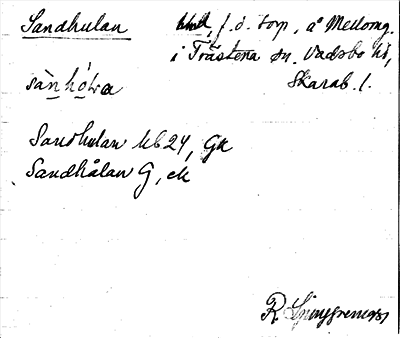 Sandhulan f.d. torp, å Mellomg.
i Trästena sn. Vadsbo hd,
Skarab. l.
sàn hó̀ɫa
Sandhulan Kb 24, Gk
Sandhålan G, ek
R.